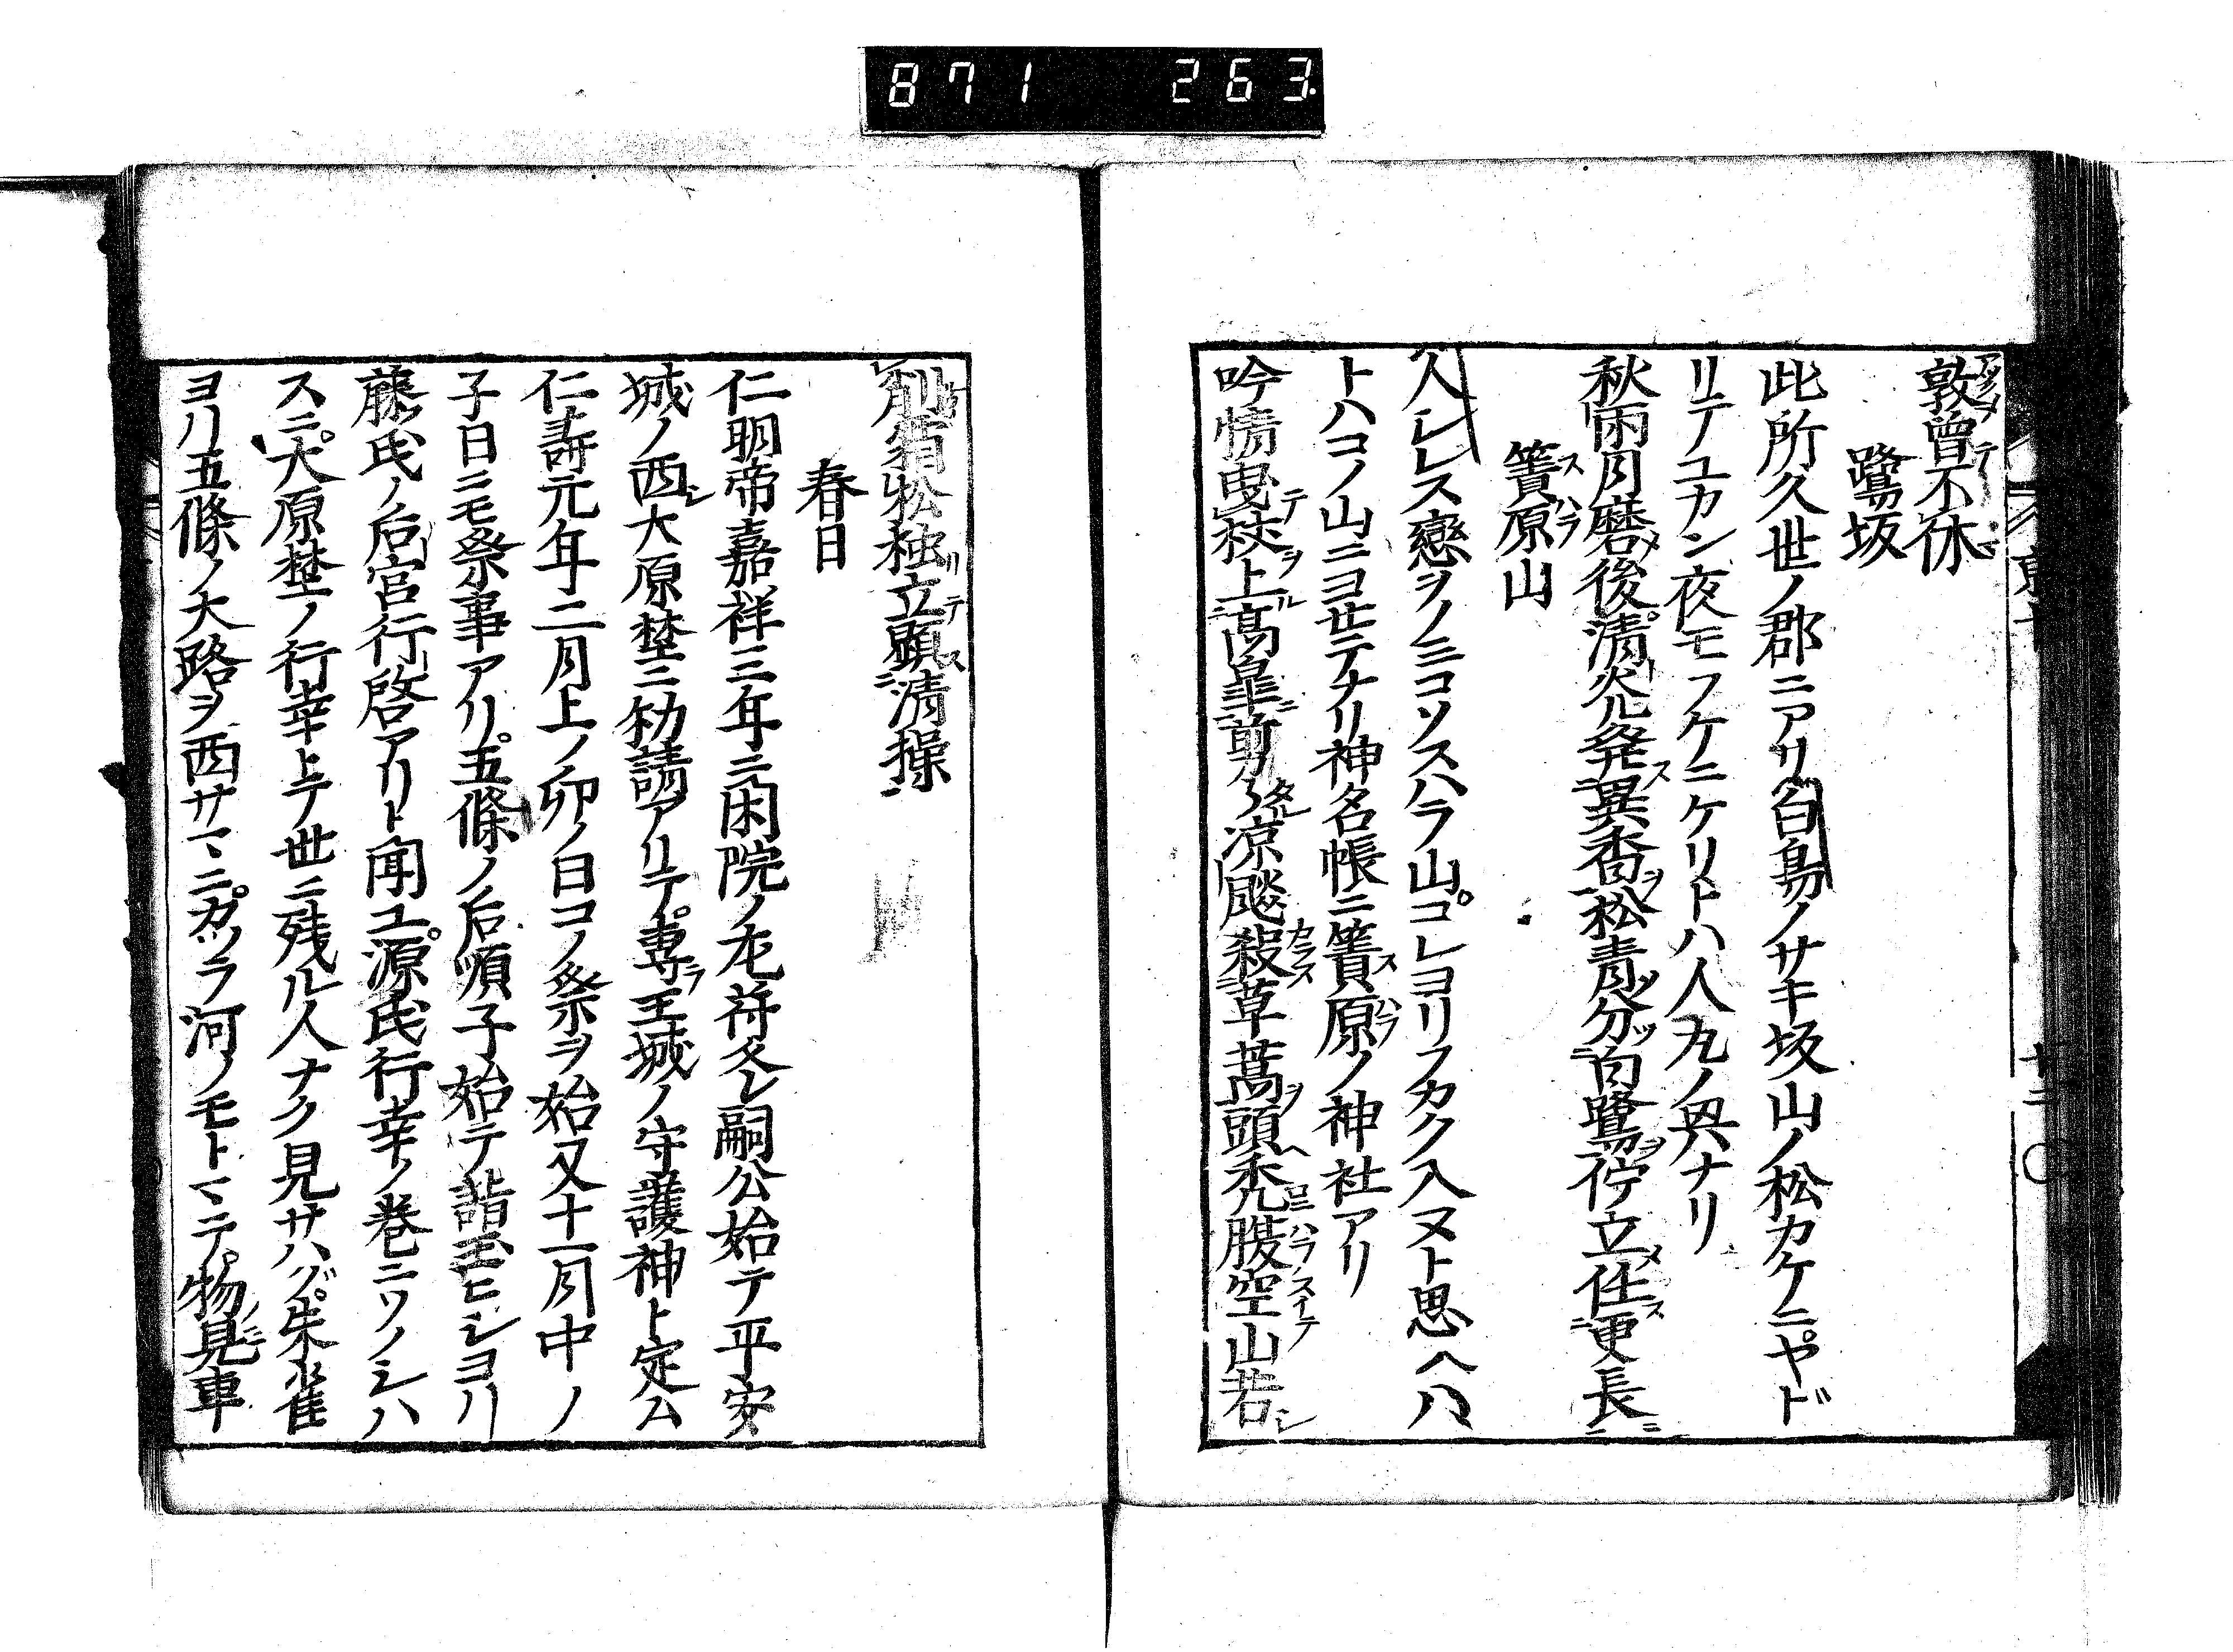 871 263
敦曾不休
鷺坂
此所久世ノ郡ニアリ白鳥ノサキ坂山ノ松カケニヤド
リテユカン夜モフケニケリトハ人丸ノ㒷ナリ
秋雨月磨後清光発異香松青分白鷺佇立住更長
簀原山
人レレス戀ヲノミコソスハラ山コレヨリフカク入ヌト思ヘハ
トハコノ山ニヨセテナリ神名帳ニ簀原ノ神社アリ
吟情曳杖上高皐前乃凉飈殺草蒿頭禿腹空山若
翁松独立顕清操
春日
仁明帝嘉祥三年ニ閑院ノ左苻冬レ嗣公始テ平安
城ノ西シ大原埜ニ勧請アリテ専ラ王城ノ守護神ト定公
仁壽元年二月上ノ卯ノ日コノ祭ヲ始又十一月中ノ
子日ニモ祭事アリ五條ノ后順子始テ詣玉ヒシヨリ
藤氏ノ后宮行啓アリト聞ユ源氏行幸ノ巻ニソノシハ
スニ大原埜ノ行幸トテ世ニ残ル人ナク見サハグ朱雀
ヨリ五條ノ大路ヲ西サマニカツラ河ノモトマテ物見車